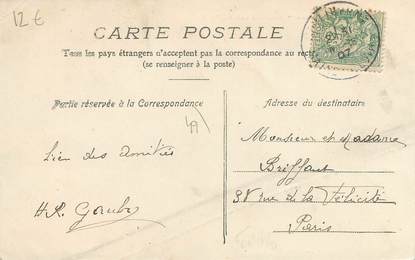 12€
CARTE POSTALE
Tous les pays étrangers n'acceptent pas la correspondance au recto
(se renseigner à la poste)
Partie réservée à la Correspondance
Adresse du destinataire
Monsieur et Madame
Briffaut
rue de la Félicité
Paris
des amitiés
H.R.